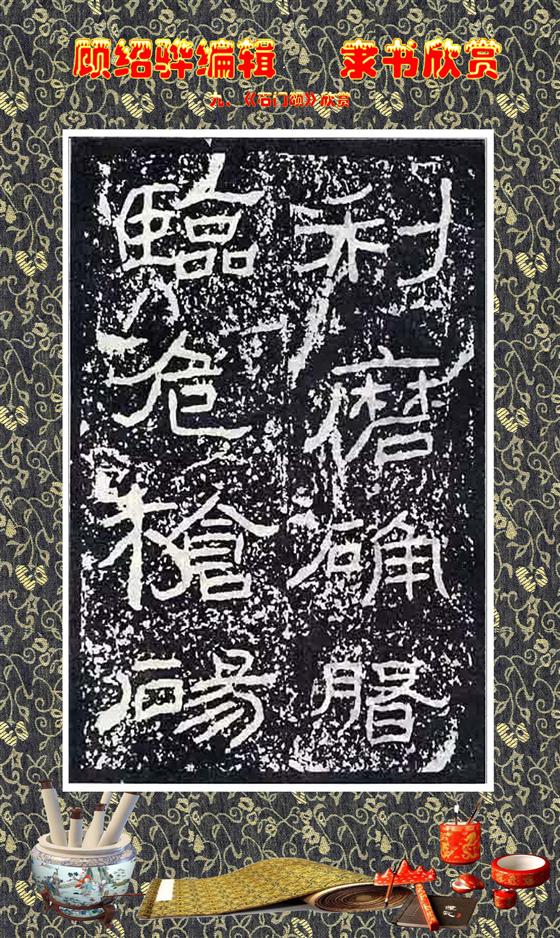 顾绍骅编辑 隶书欣赏
九、《石门颂》欣赏
利磨确磐
臨危槍碭